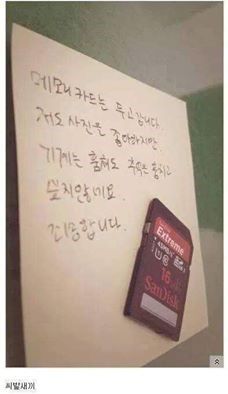 메모리카드는 두고갑니다.
저도 사진을 좋아하지만,
기계는 훔쳐도 추억은 훔치고
싶지않네요.
죄송합니다.
SanDisk
Extreme
45MB/s
16 GB
SanDisk
씨발새끼